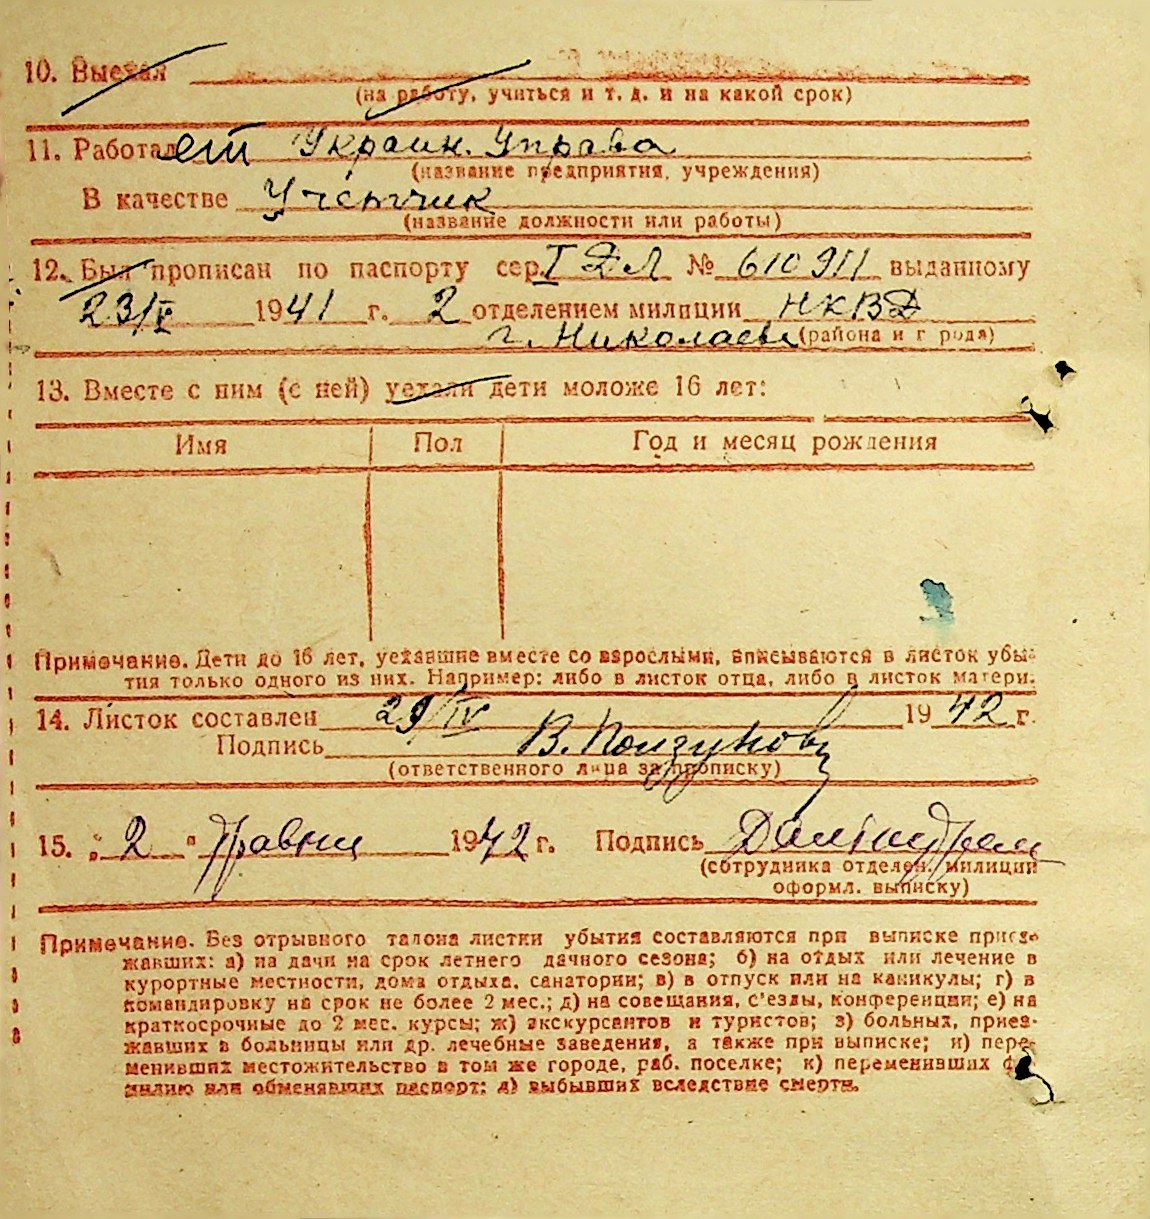 10. Выехал
(на работу, учиться и т. д. и на какой срок)
11. Работает Украин. Управа
(название предприятия, учреждения)
В качестве Учётчик
(название должности или работы)
12. Был прописан по паспорту сер. I ДЛ № 610911 выданному
23/V 1941 г. 2 отделением милиции НКВД
г. Николаева (района и города)
13. Вместе с ним (с ней) уехали дети моложе 16 лет:
Имя Пол Год и месяц рождения
Примечание. Дети до 16 лет, уехавшие вместе со взрослыми, вписываются в листок убы-
тия только одного из них. Например: либо в листок отца, либо в листок матери.
14. Листок составлен 29/IV 1942 г.
Подпись В. Ползунова
(ответственного лица за прописку)
15. „2" Травня 1942 г. Подпись
(сотрудника отделен. милиции
оформл. выписку)
Примечание. Без отрывного талона листки убытия составляются при выписке приез-
жавших: а) на дачи на срок летнего дачного сезона; б) на отдых или лечение в
курортные местности, дома отдыха, санатории; в) в отпуск или на каникулы; г) в
командировку на срок не более 2 мес.; д) на совещания, с'езды, конференции; е) на
краткосрочные до 2 мес. курсы; ж) экскурсантов и туристов; з) больных, приез-
жавших в больницы или др. лечебные заведения, а также при выписке; и) пере-
менивших местожительство в том же городе, раб. поселке; к) переменивших фа-
милию или обменявших паспорт; л) выбывших вследствие смерти.